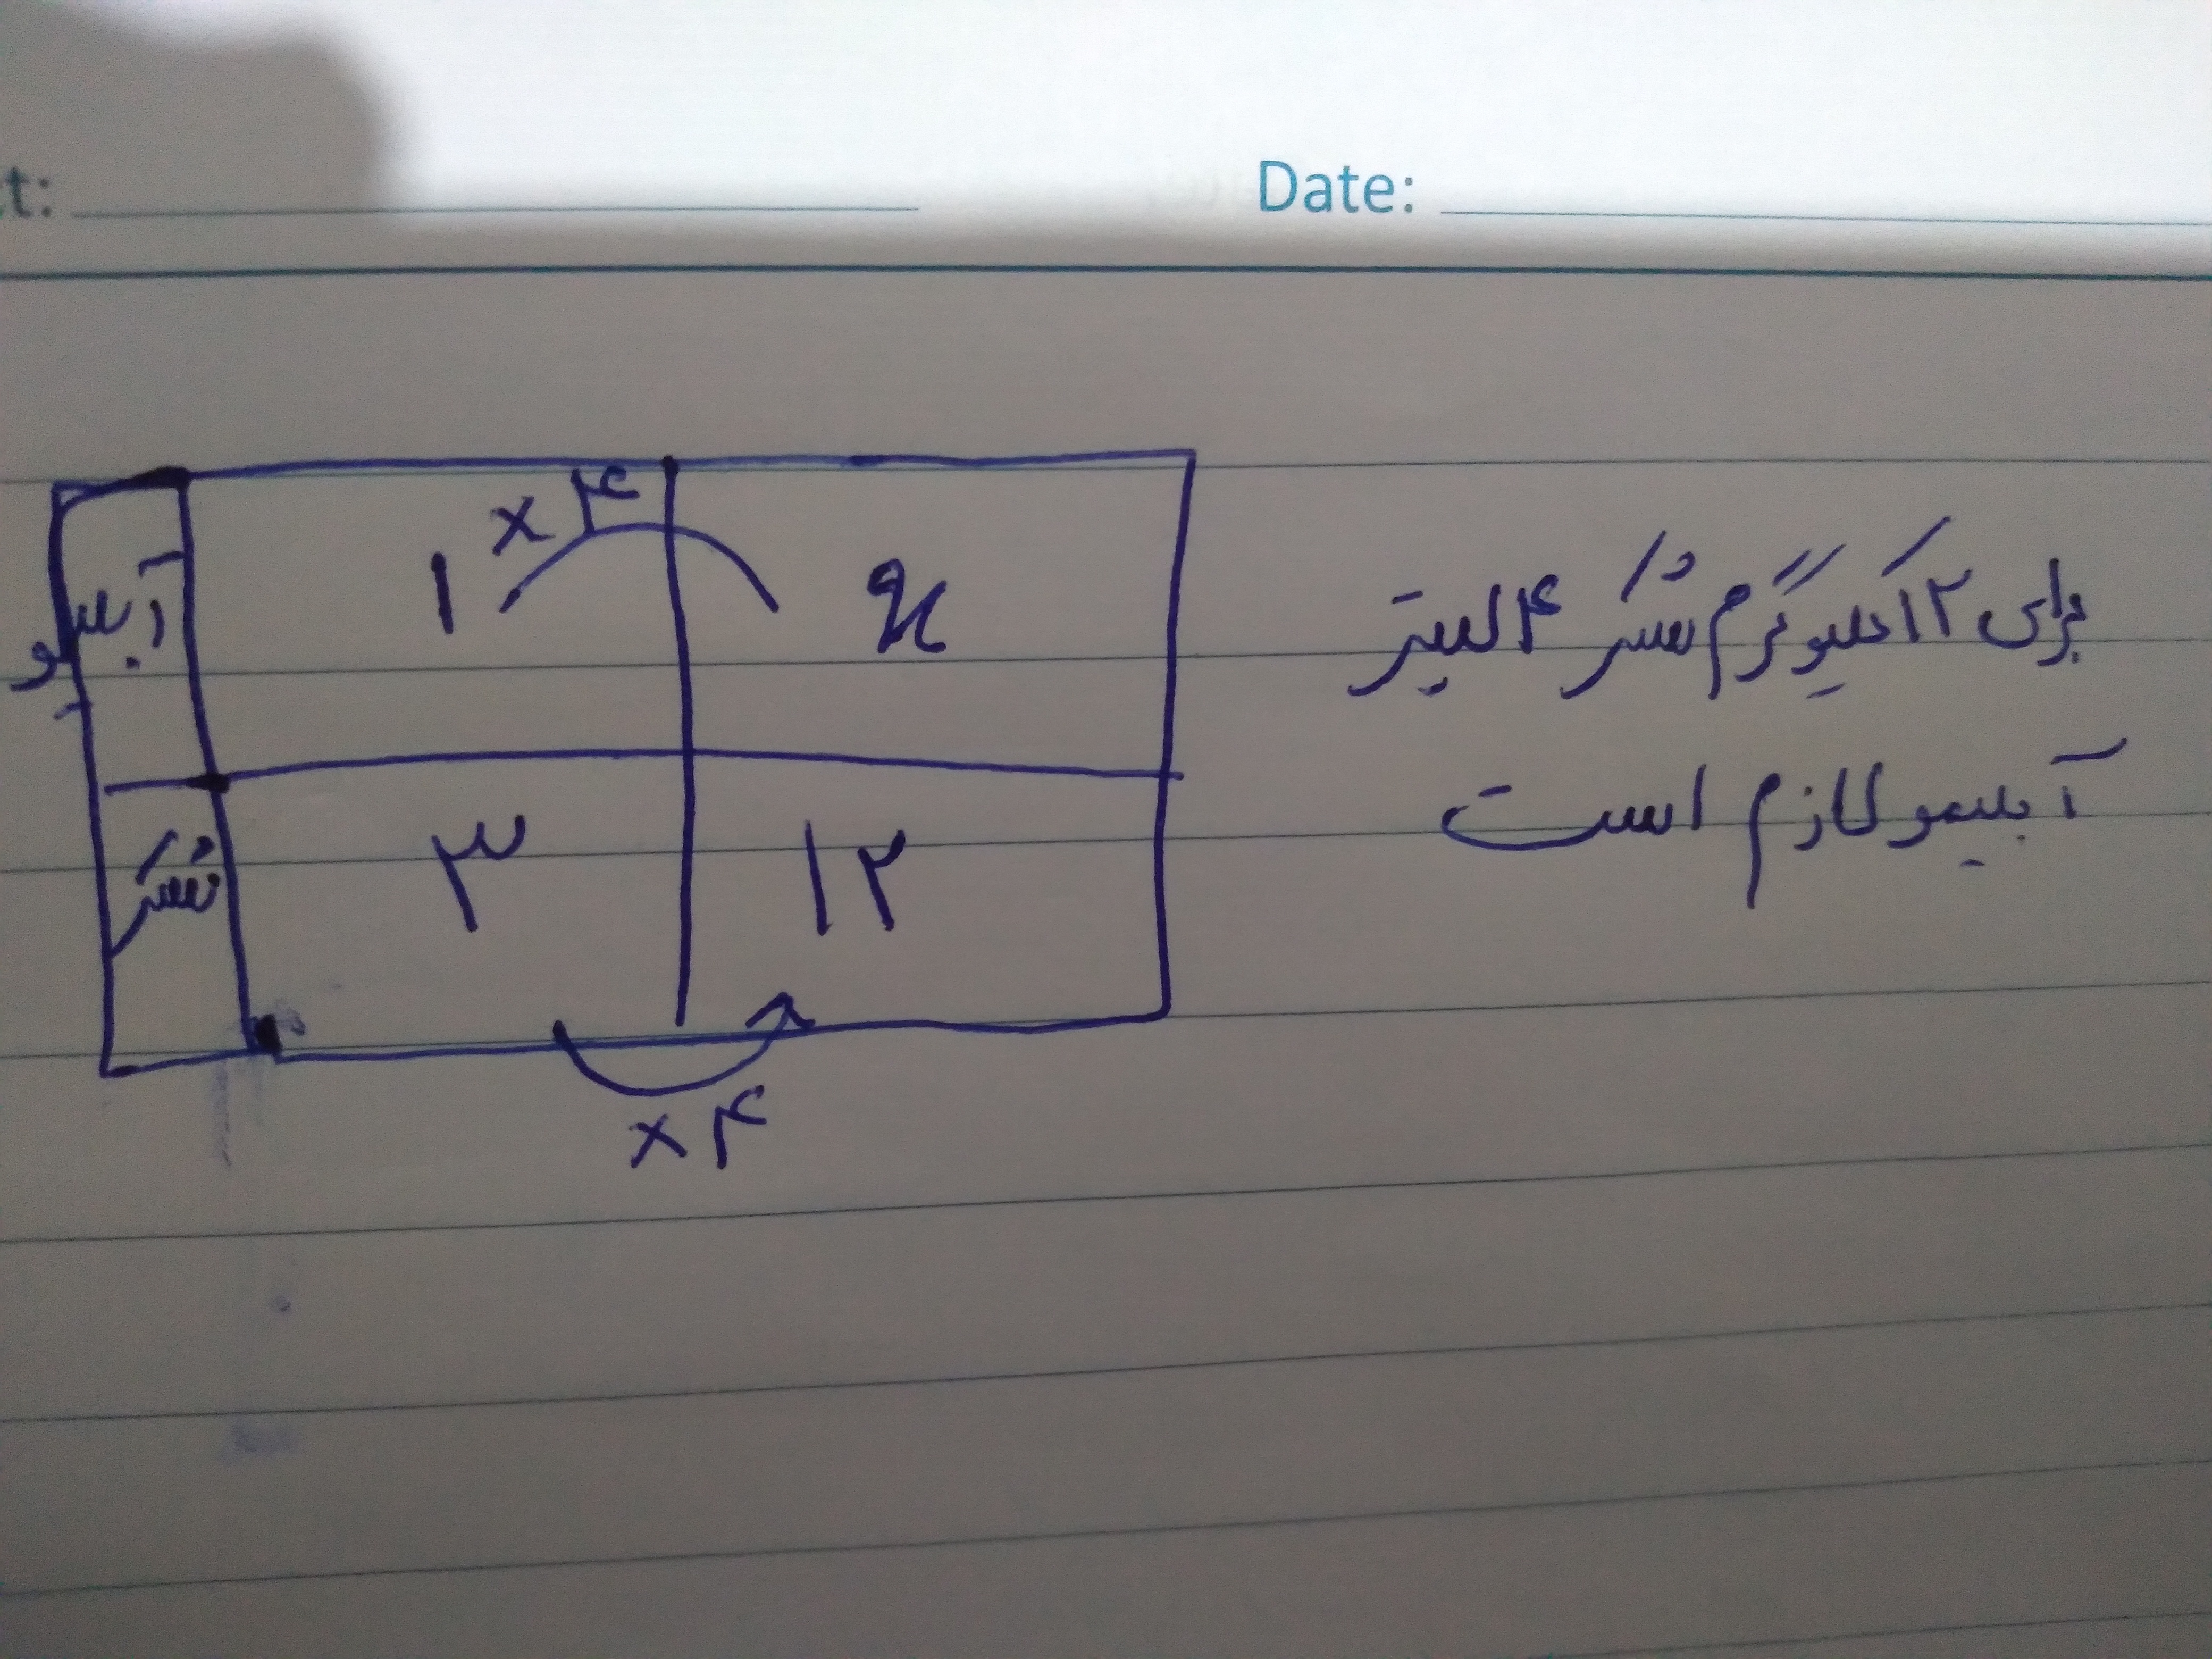 ct: Date:
×۴
آبلیمو ۱ x
شکر ۳ ۱۲
×۴
برای ۱۲ کیلوگرم شکر ۴ لیتر
آبلیمو لازم است